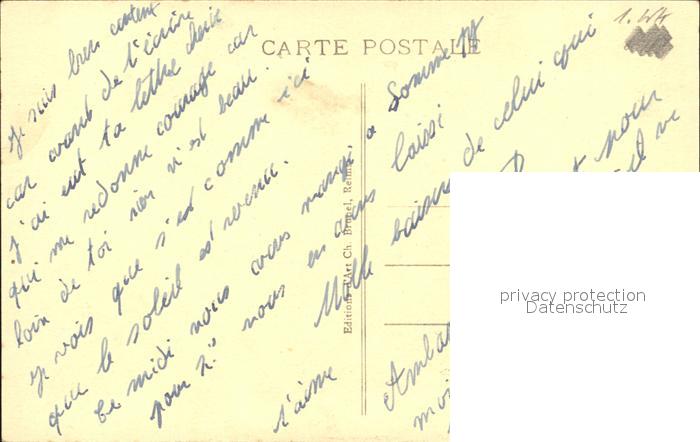 CARTE POSTALE
1. WK
Je suis bien content
car avant de t'écrire
j'ai eut ta lettre cherie
qui me redonne courage car
loin de toi rien n'est beau.
Je vois que s'est comme ici
que le soleil est revenu.
Ce midi nous avons mangé a Somme
pour nous en avons laissé
Mille baisers de celui qui
t'aime
et pour
Editions d'Art Ch. Brunel, Reims
privacy protection
Datenschutz